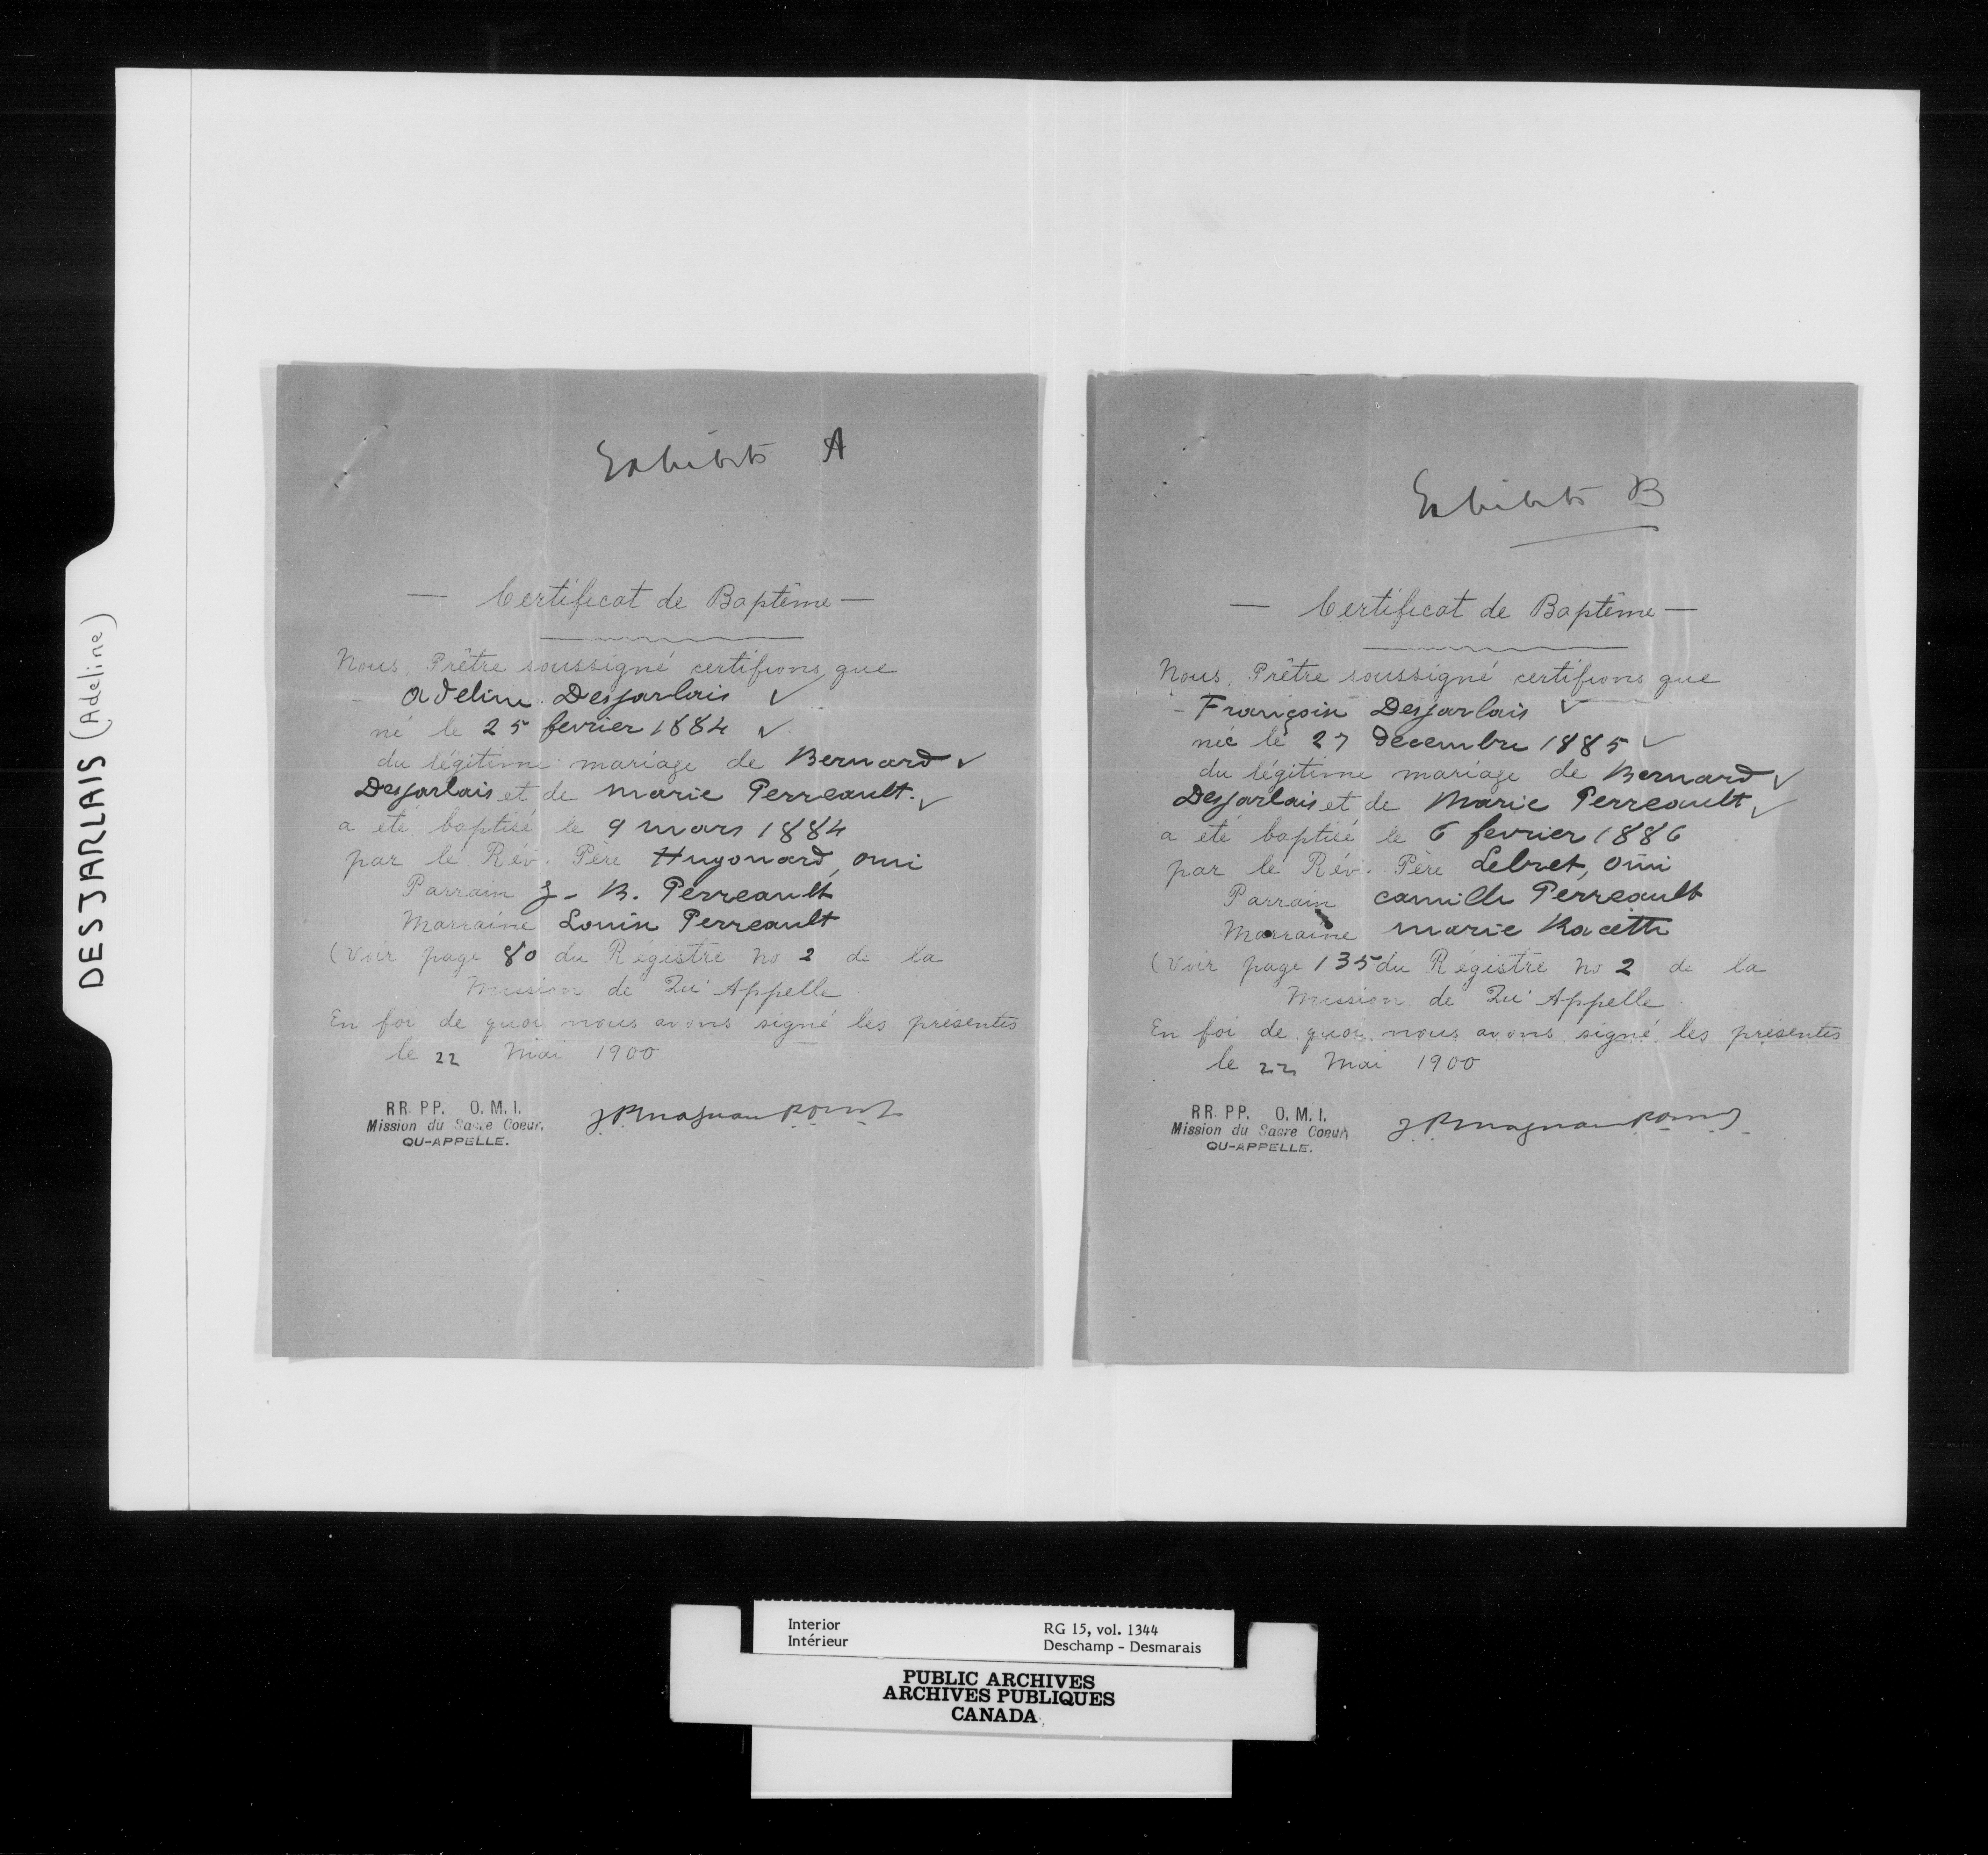 DESJARLAIS (Adeline)
Exhibit A
— Certificat de Baptême —
Nous, Prêtre soussigné certifions que
- Adeline Desjarlais ✓
né le 25 fevrier 1884 ✓
du légitime mariage de Bernard ✓
Desjarlais et de Marie Perreault. ✓
a été baptisé le 9 mars 1884
par le Rév. Père Hugonard, omi
Parrain J-B. Perreault
Marraine Louise Perreault
(Voir page 80 du Régistre No 2 de la
Mission de Qu'Appelle
En foi de quoi nous avons signé les présentes
le 22 Mai 1900
RR. PP. O. M. I.
Mission du Sacre Coeur,
QU-APPELLE.
J. P. Magnan
Exhibit B
— Certificat de Baptême —
Nous, Prêtre soussigné certifions que
- Françoise Desjarlais ✓
née le 27 decembre 1885 ✓
du légitime mariage de Bernard ✓
Desjarlais et de Marie Perreault ✓
a été baptisé le 6 fevrier 1886
par le Rév. Père Lebret, omi
Parrain Camille Perreault
Marraine Marie Racette
(Voir page 135 du Régistre No 2 de la
Mission de Qu'Appelle
En foi de quoi nous avons signé les présentes
le 22 Mai 1900
RR. PP. O. M. I.
Mission du Sacre Coeur
QU-APPELLE.
J. P. Magnan
Interior
Intérieur
RG 15, vol. 1344
Deschamp - Desmarais
PUBLIC ARCHIVES
ARCHIVES PUBLIQUES
CANADA